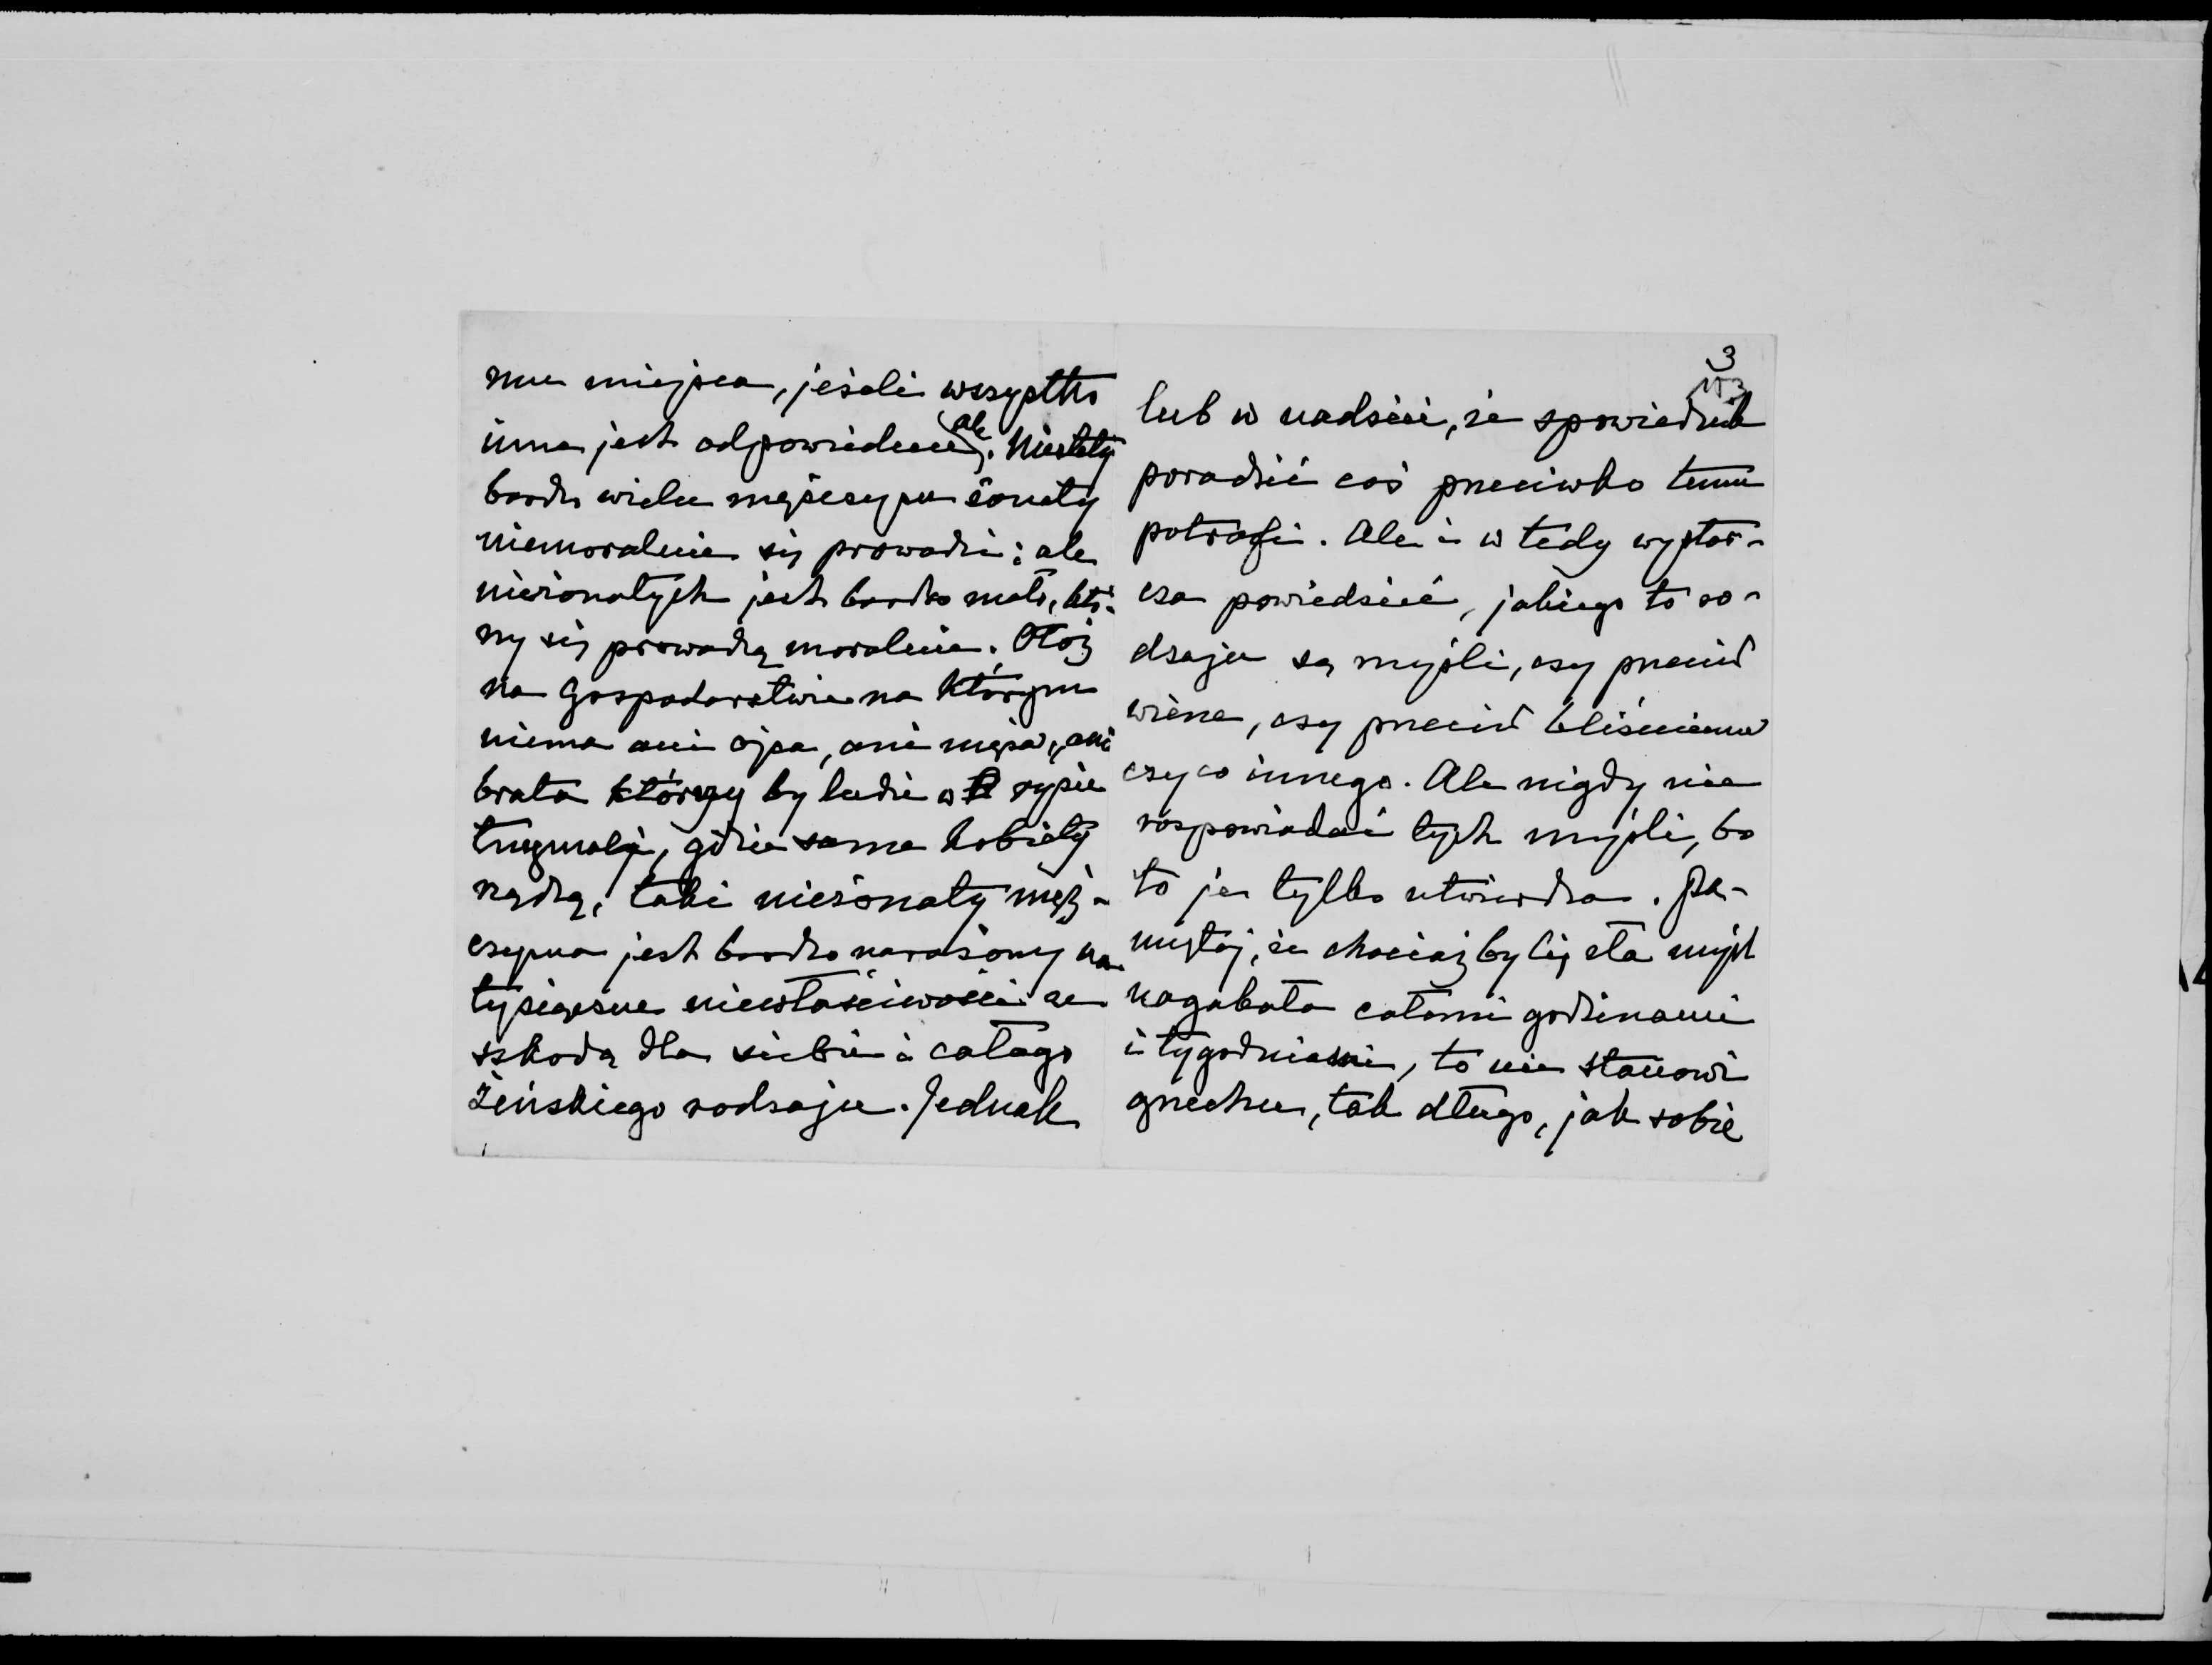 mu miejsca, jeżeli wszystko
inne jest odpowiednie ale. Niestety
bardzo wielu mężczyzn żonaty
niemoralnie się prowadzi; ale
nieżonatych jest bardzo mało, któ-
rzy się prowadzą moralnie. Otóż
na gospodarstwie na którym
niema ani ojca, ani męża, ani
brata którzy by ludzi w ryzie
trzymali, gdzie same kobiety
rządzą, taki nieżonaty męż-
czyzna jest bardzo narażony na
tysiączne niewłaściwości ze
szkodą dla siebie i całego
żeńskiego rodzaju. Jednak
3
lub w nadziei, że spowiednik
poradzić coś przeciwko temu
potrafi. Ale i w tedy wystar-
cza powiedzieć, jakiego to ro-
dzaju są myśli, czy przeciw
wierze, czy przeciw bliźniemu
czy co innego. Ale nigdy nie
rozpowiadać tych myśli, bo
to je tylko utwierdza. Pa-
miętaj, że chociaż by Cię zła myśl
nagabała całemi godzinami
i tygodniami, to nie stanowi
grzechu, tak długo, jak sobie